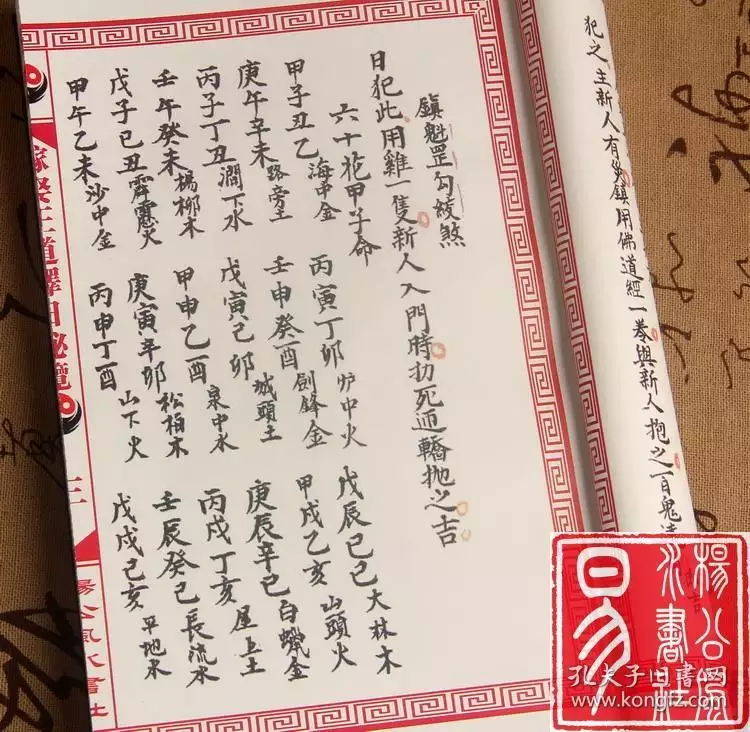 犯之主新人有災鎮用佛道經一卷與新人抱之百鬼
吉
鎮魁罡勾絞煞
日犯此用雞一隻新人入門時扐死逥轎抛之吉
六十花甲子命
甲子丑乙海中金 丙寅丁卯炉中火 戊辰巳己大林木
庚午辛未路旁土 壬申癸酉劍鋒金 甲戌乙亥山頭火
丙子丁丑澗下水 戊寅己卯城頭土 庚辰辛巳白蠟金
壬午癸未楊柳木 甲申乙酉泉中水 丙戌丁亥屋上土
戊子己丑霹靂火 庚寅辛卯松柏木 壬辰癸巳長流水
甲午乙未沙中金 丙申丁酉山下火 戊戌己亥平地木
嫁娶王道擇日秘覽
三
楊公風水書社
楊公風
水書社
易
孔夫子旧书网
www.kongfz.com